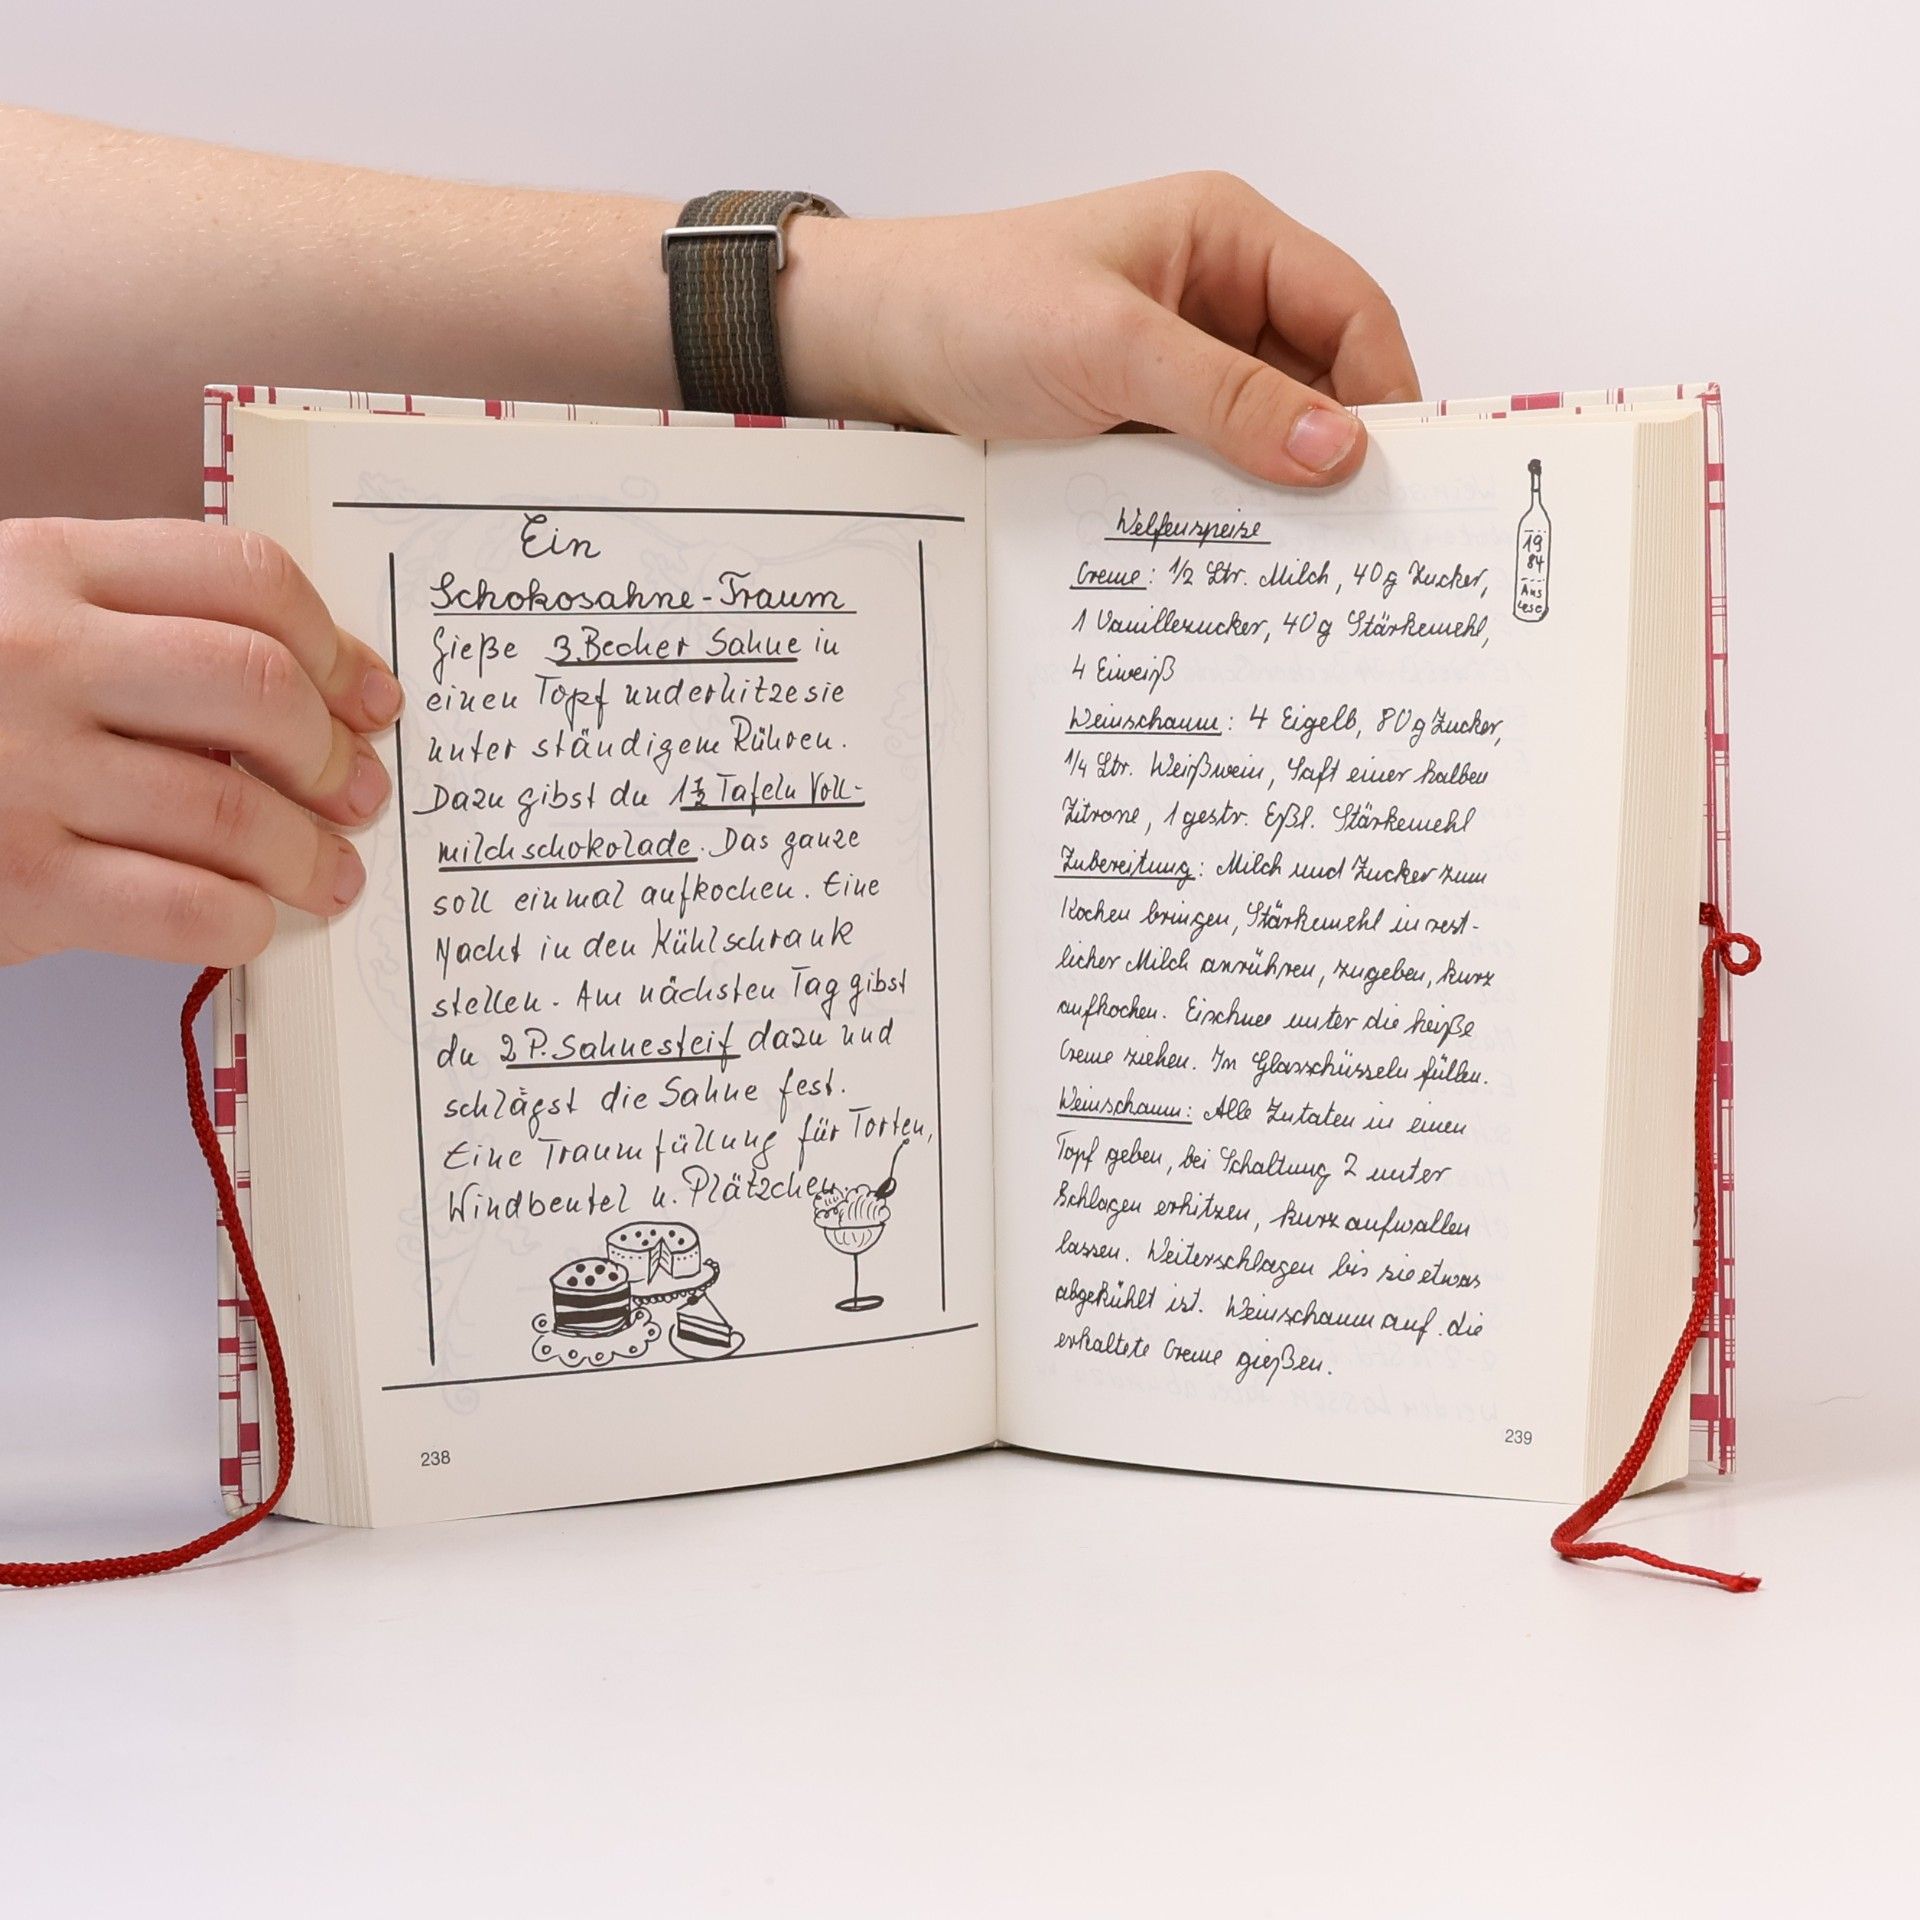 Ein
Schokosahne-Traum
Gieße 3 Becher Sahne in
einen Topf und erhitze sie
unter ständigem Rühren.
Dazu gibst du 1½ Tafeln Voll-
milchschokolade. Das ganze
soll einmal aufkochen. Eine
Nacht in den Kühlschrank
stellen. Am nächsten Tag gibst
du 2 P. Sahnesteif dazu und
schlägst die Sahne fest.
Eine Traumfüllung für Torten,
Windbeutel u. Plätzchen.
238
19
84
Aus
lese
Welfenspeise
Creme: 1/2 Ltr. Milch, 40g Zucker,
1 Vanillezucker, 40g Stärkemehl,
4 Eiweiß
Weinschaum: 4 Eigelb, 80g Zucker,
1/4 Ltr. Weißwein, Saft einer halben
Zitrone, 1 gestr. Eßl. Stärkemehl
Zubereitung: Milch und Zucker zum
Kochen bringen, Stärkemehl in rest-
licher Milch anrühren, zugeben, kurz
aufkochen. Eischnee unter die heiße
Creme ziehen. In Glasschüsseln füllen.
Weinschaum: Alle Zutaten in einen
Topf geben, bei Schaltung 2 unter
Schlagen erhitzen, kurz aufwallen
lassen. Weiterschlagen bis sie etwas
abgekühlt ist. Weinschaum auf die
erkaltete Creme gießen.
239